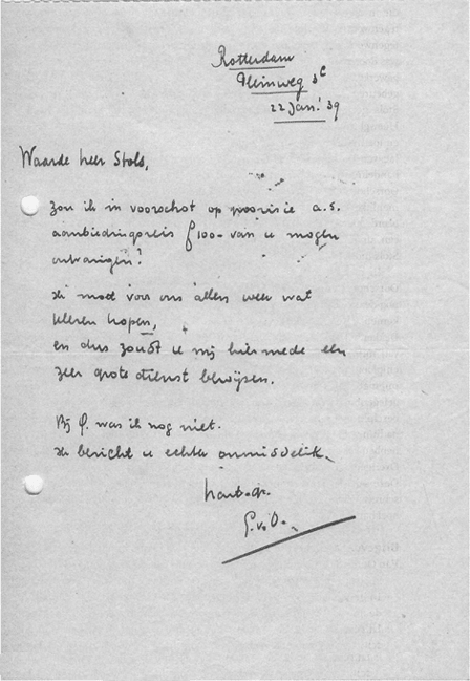 Rotterdam
Pleinweg 3c
22 Jan. '39
Waarde heer Stols,
Zou ik in voorschot op provisie a.s.
aanbiedingsreis f 100.- van u mogen
ontvangen?
Ik moet voor ons allen weer wat
kleren kopen,
en dus zoudt u mij hiermede een
zeer grote dienst bewijzen.
Bij P. was ik nog niet.
Ik bericht u echter onmiddelik.
hart. gr.
P. v. O.